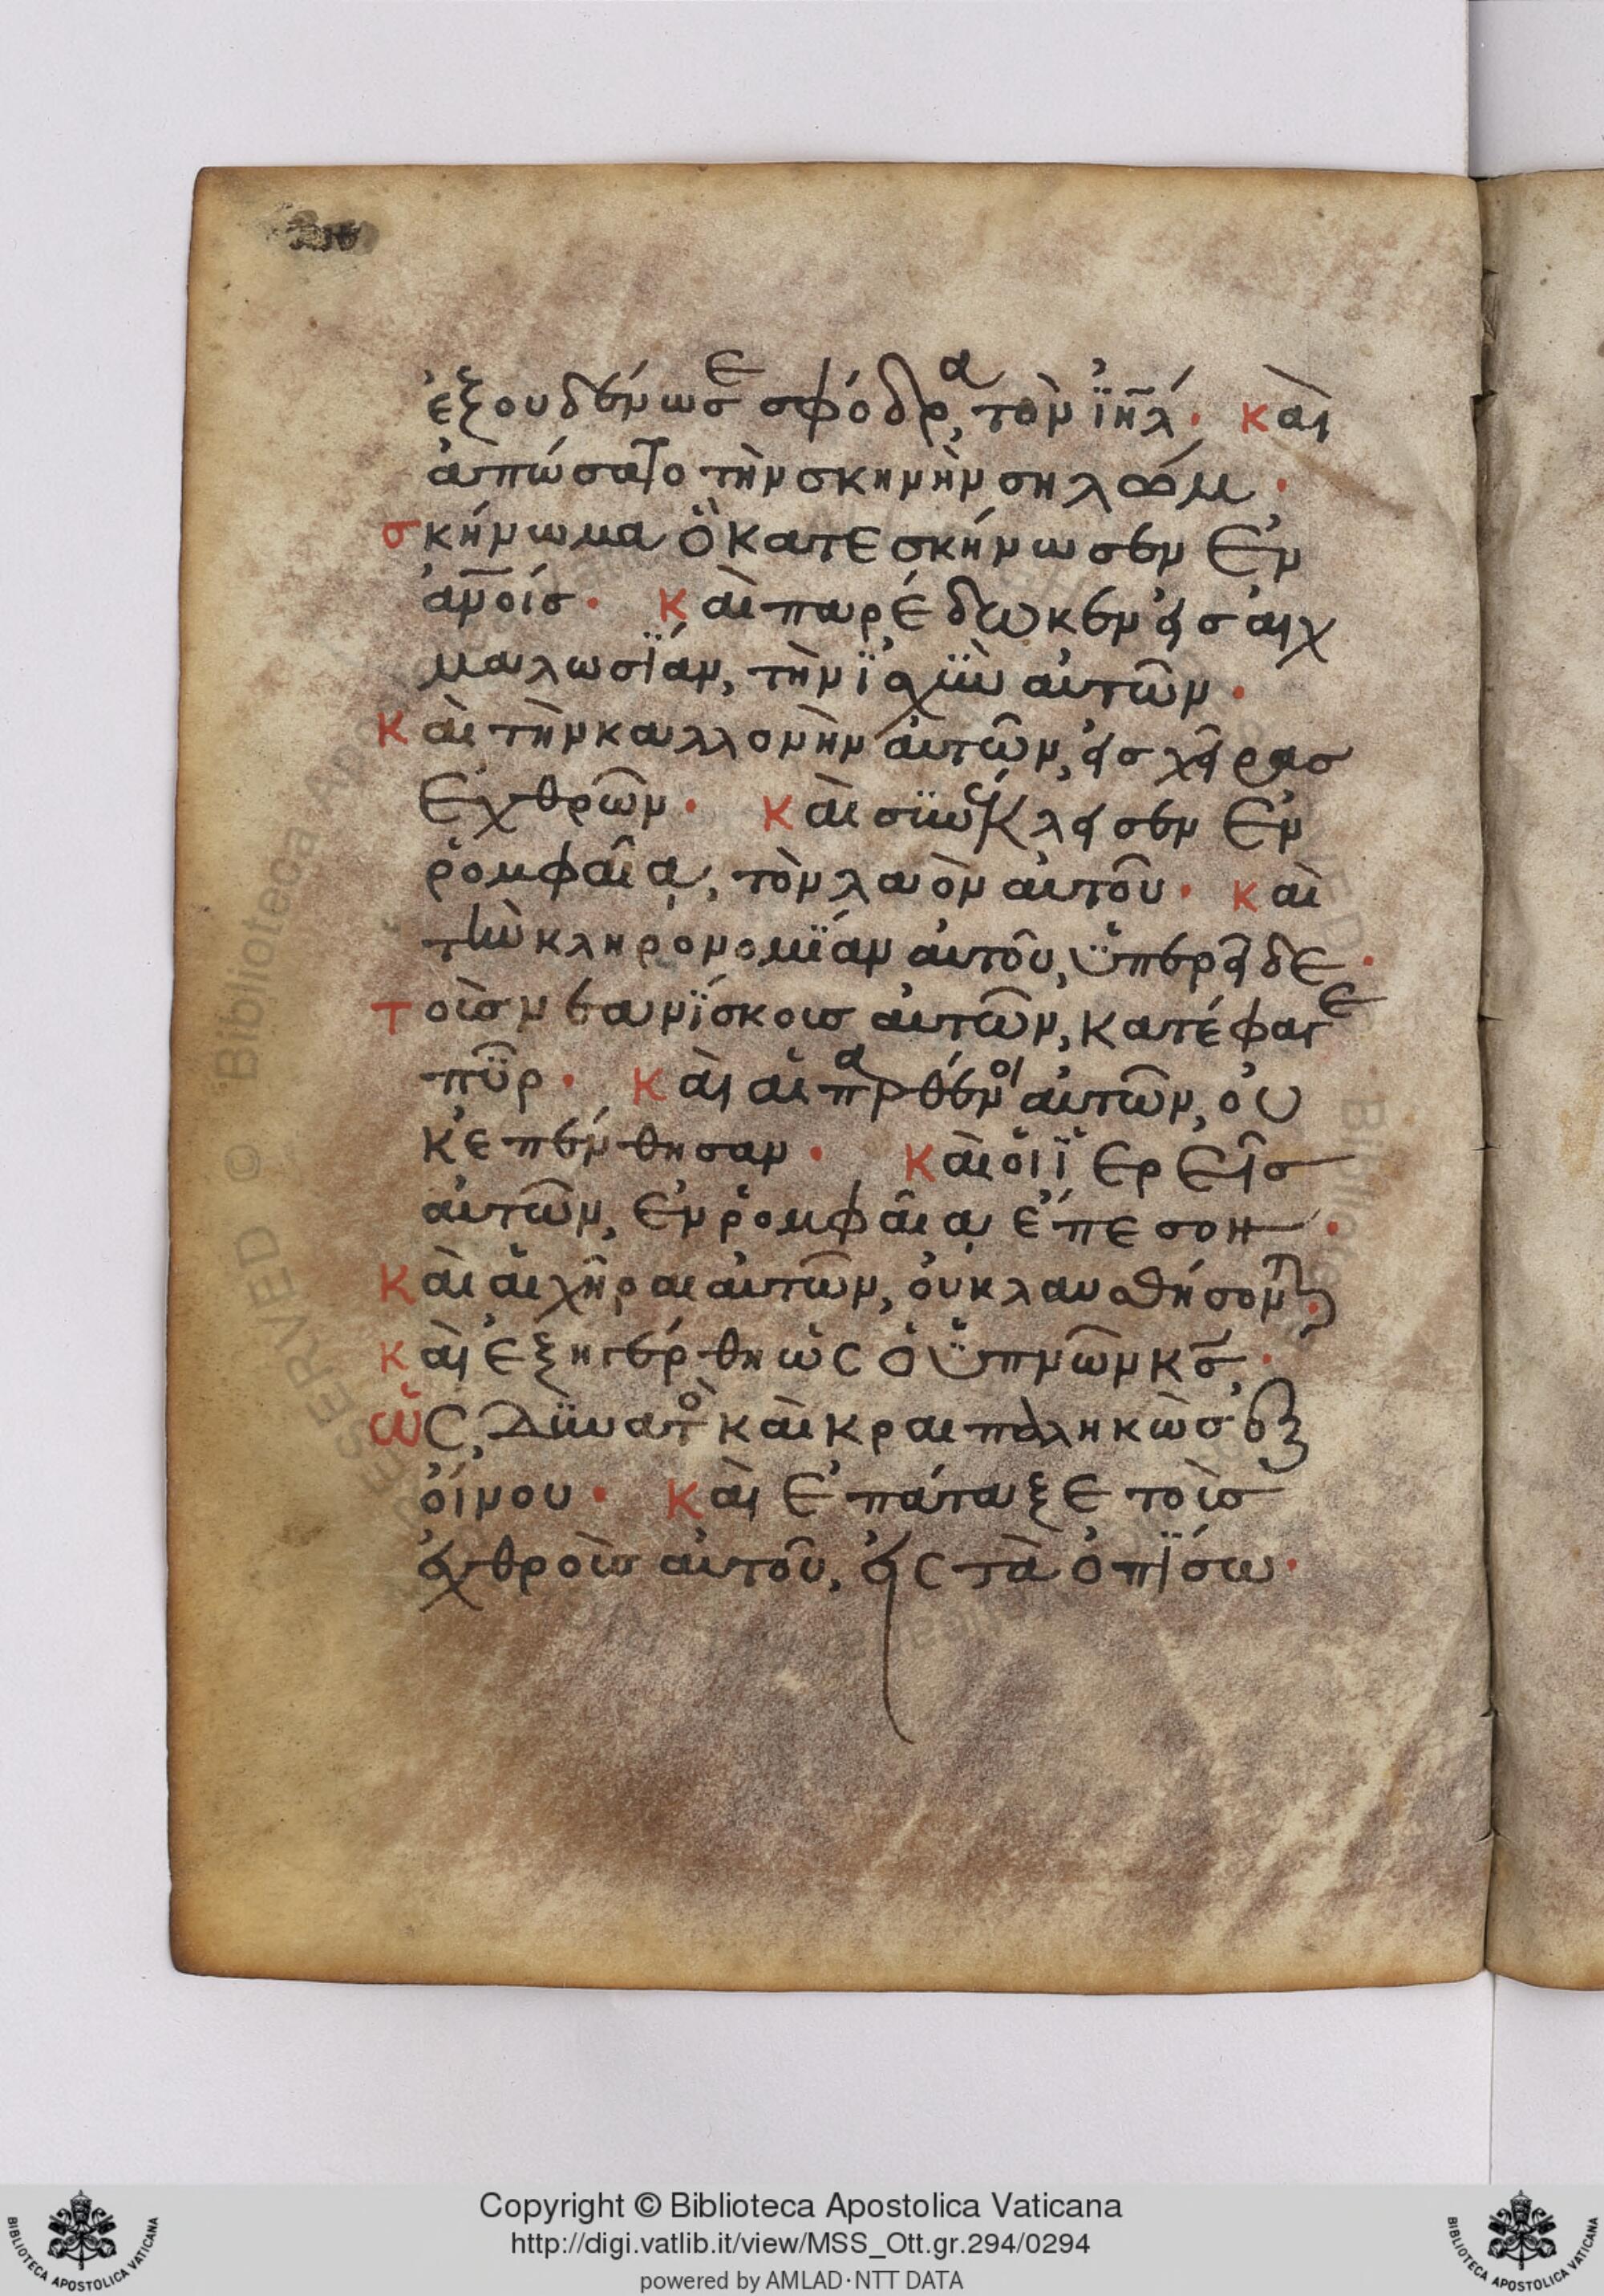 ἐξουδένωσε σφόδρα, τὸν ἰη̅λ· Καὶ
ἀπώσατο τὴν σκηνὴν σηλώμ·
σκήνωμα ὃ κατεσκήνωσεν ἐν
ἀ̅νοίσ· Καὶ παρέδωκεν εἰσ αἰχ
μαλωσίαν, τὴν ἰσχὺν αὐτῶν·
Καὶ τὴν καλλονὴν αὐτῶν, εἰσ χεῖρασ
ἐχθρῶν· Καὶ συνέκλεισεν ἐν
ῥομφαῖᾳ, τὸν λαὸν αὐτοῦ· Καὶ
τὴν κληρονομίαν αὐτοῦ, ὑπερεῖδε·
τοὺσ νεανίσκουσ αὐτῶν, κατέφαγε
πῦρ· Καὶ αἱ παρθένοι αὐτῶν, οὐ
κ ἐπένθησαν· Καὶ οἱ ἱερεῖσ
αὐτῶν, ἐν ῥομφαῖᾳ ἔπεσον·
Καὶ αἱ χῆραι αὐτῶν, οὐ κλαυσθήσονται·
Καὶ ἐξηγέρθη ὡς ὁ ὑπνῶν κ̅σ̅,·
ὡς, δυνατὸσ καὶ κραιπαληκὼσ ἐξ
οἴνου· Καὶ ἐπάταξε τοὺσ
ἐχθροὺσ αὐτοῦ, εἰς τὰ ὀπίσω·
Copyright © Biblioteca Apostolica Vaticana
http://digi.vatlib.it/view/MSS_Ott.gr.294/0294
powered by AMLAD·NTT DATA
BIBLIOTECA APOSTOLICA VATICANA
BIBLIOTECA APOSTOLICA VATICANA